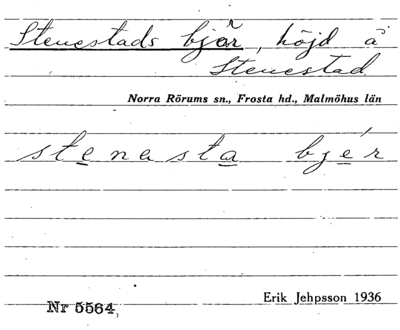 Stenestads bjär, höjd å
Stenestad
Norra Rörums sn., Frosta hd., Malmöhus län
stenasta bjér
Erik Jehpsson 1936
Nr 5564